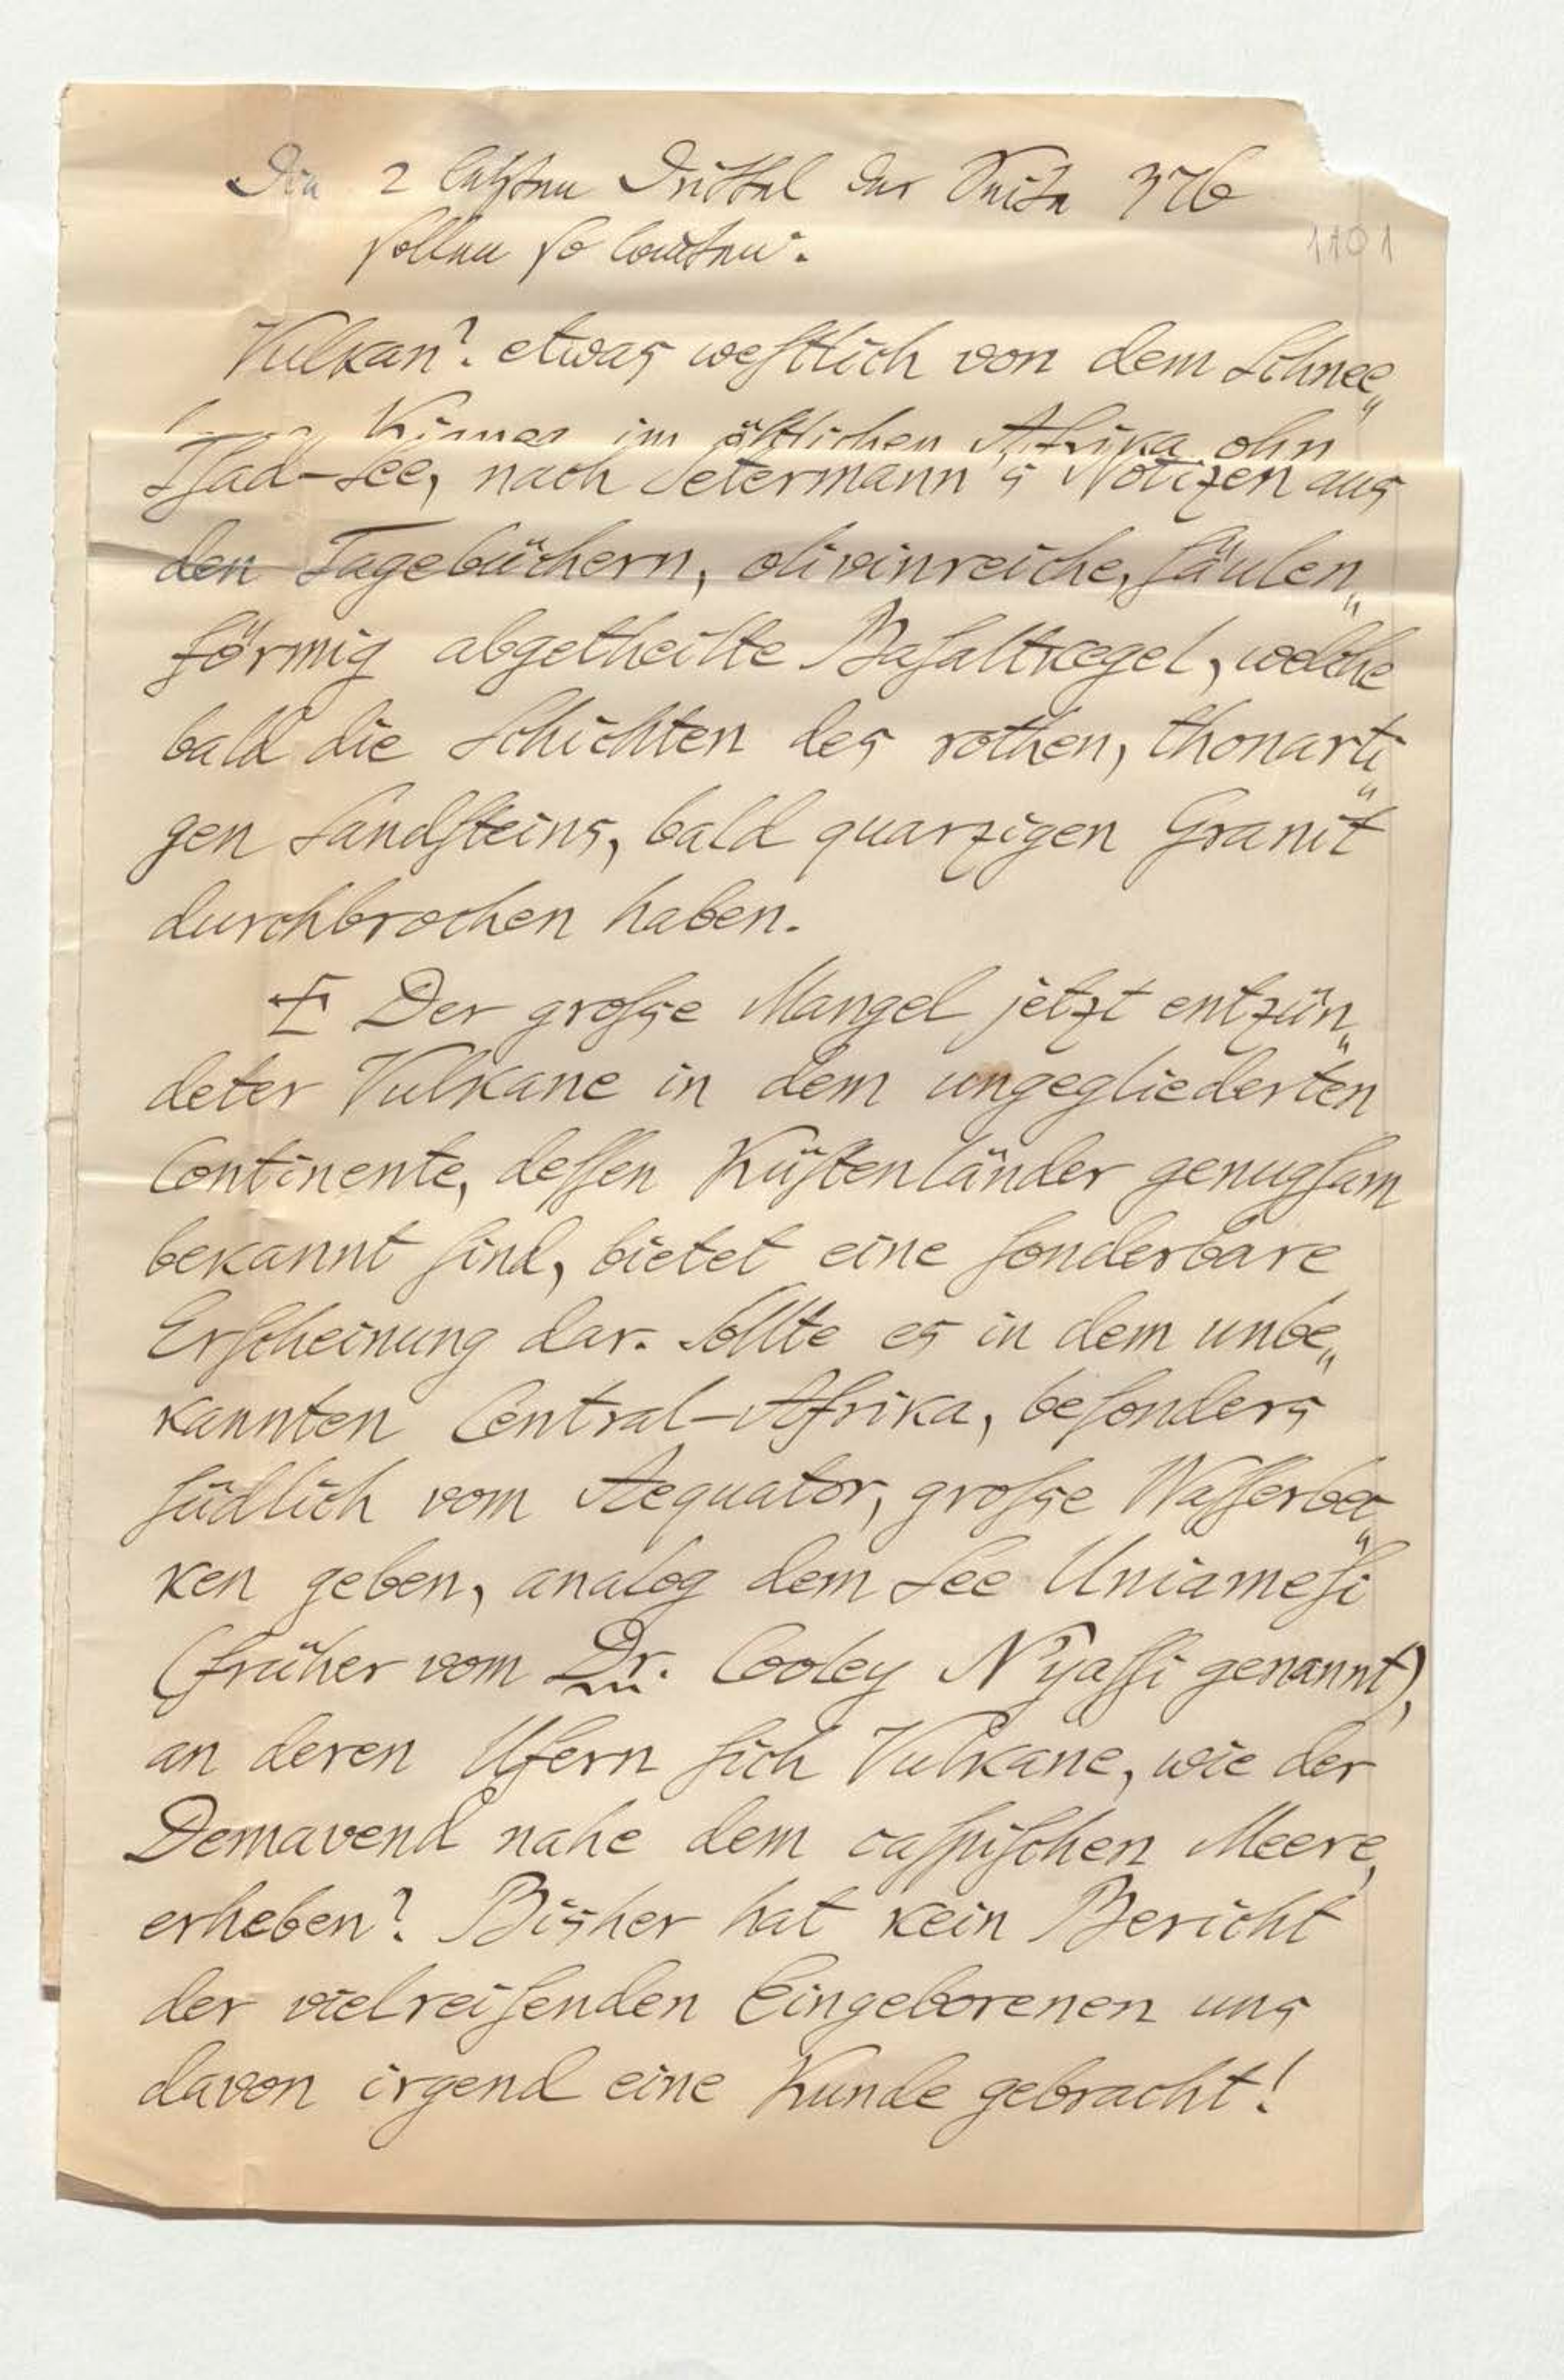 Die 2 letzten Drittel der Seite 376
sollen so lauten:
1101
Vulkan? etwas weſtlich von dem Schnee„
Kignea im öſtlichen Afrika ohn
Tſad-See, nach Petermann's Notizen aus
den Tagebüchern, olivinreiche, ſäulen„
förmig abgetheilte Baſaltkegel, welche
bald die Schichten des rothen, thonarti„
gen Sandſteins, bald quarzigen Granit
durchbrochen haben.
Der groſse Mangel jetzt entzün„
deter Vulkane in dem ungegliederten
Continente, deſſen Küſtenländer genugſam
bekannt ſind, bietet eine ſonderbare
Erſcheinung dar. Sollte es in dem unbe„
kannten Central-Afrika, beſonders
ſüdlich vom Aequator, groſse Waſſerbek„
ken geben, analog dem See Uniameſi
(früher vom Dr. Cooley N'yaſſi genannt),
an deren Ufern ſich Vulkane, wie der
Demavend nahe dem caſpiſchen Meere,
erheben? Bisher hat kein Bericht
der vielreiſenden Eingeborenen uns
davon irgend eine Kunde gebracht!